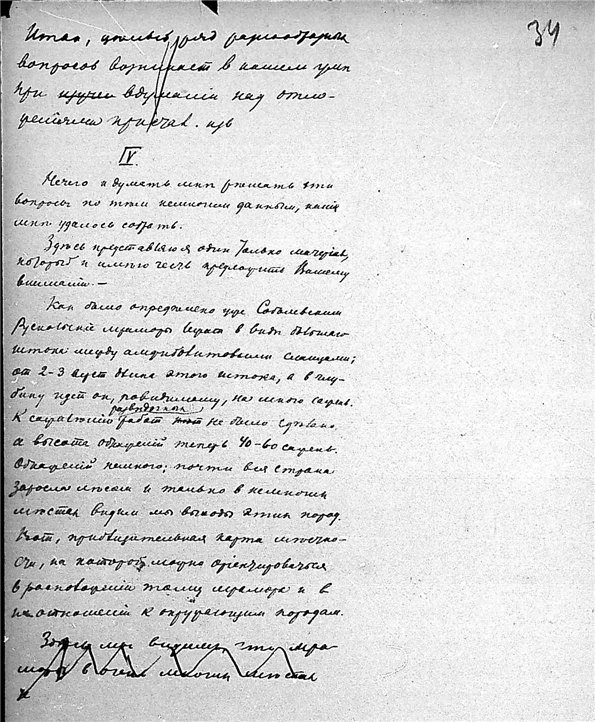 34
Итак, целый ряд разнообразных
вопросов возникает в нашем уме
при изучен вдумании над отно-
шениями
IV.
Нечего и думать мне решать эти
вопросы по тем немногим данным, какие
мне удалось собрать.
Здесь представляю я один только матерьял,
который и имею честь предложить Вашему
вниманию. —
Как было определено уже Соболевским
Рускеальский мраморы лежат в виде большого
штока между амфиболитовыми сланцами;
от 2-3 верст длина этого штока, а в глу-
бину идет он, повидимому, на много сажень.
К сожалению разведочных работ не было сделано
а высота обнажений теперь 40-60 сажень.
Обнажений немного: почти вся страна
заросла лесом и только в немногих
местах видим мы выходы этих пород.
Вот, приблизительная карта местно-
сти, на которой можно ориентироваться
в расположении толщ мрамора и в
их отношений к окружающим породам.
Здесь мы видим, эту мра-
мора в очень многих местах